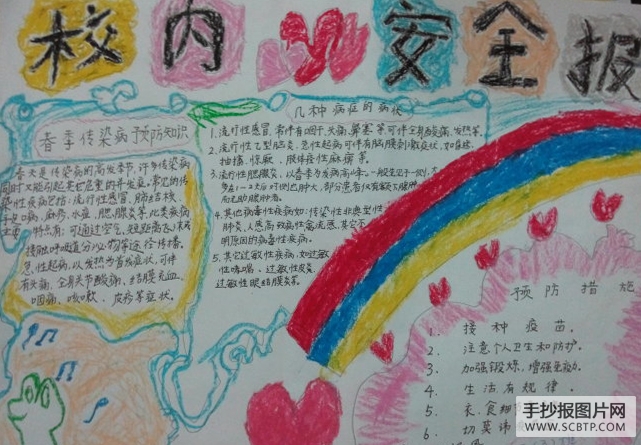 校内安全报
春季传染病预防知识
春天是传染病的高发季节,许多传染病
同时又能引起其它危重的并发症。常见的传
染性疾病包括:流行性感冒、肺结核、
手足口病、麻疹、水痘、腮腺炎等,此类疾病
特点有:可通过空气、短距离飞沫或
接触呼吸道分泌物等途径传播。
急性起病,以发热为首发症状,可伴
有头痛、全身关节酸痛、结膜充血、
咽痛、咳嗽、皮疹等症状。
几种病症的病状
1.流行性感冒,常伴有咽干、头痛、鼻塞等,可伴全身酸痛、发热等。
2.流行性乙型脑炎,急性起病可伴有脑膜刺激症状,如昏睡、
抽搐、惊厥、肢体痉性麻痹等。
3.流行性腮腺炎,以春季为发病高峰。一般先见于一侧,大
多在1-2天后对侧也肿大,部分患者仅有颌下腺肿大
而无腮腺肿者。
4.其他病毒性疾病如:传染性非典型性
肺炎、人感高致病性禽流感、其它不
明原因的病毒性疾病。
5.其它过敏性疾病,如过敏
性哮喘、过敏性皮炎、
过敏性眼结膜炎等。
预防措施
1. 接种疫苗。
2. 注意个人卫生和防护。
3. 加强锻炼,增强免疫力。
4. 生活有规律。
5 衣、食
6 切莫讳
手抄报图片网
WWW.SCBTP.COM